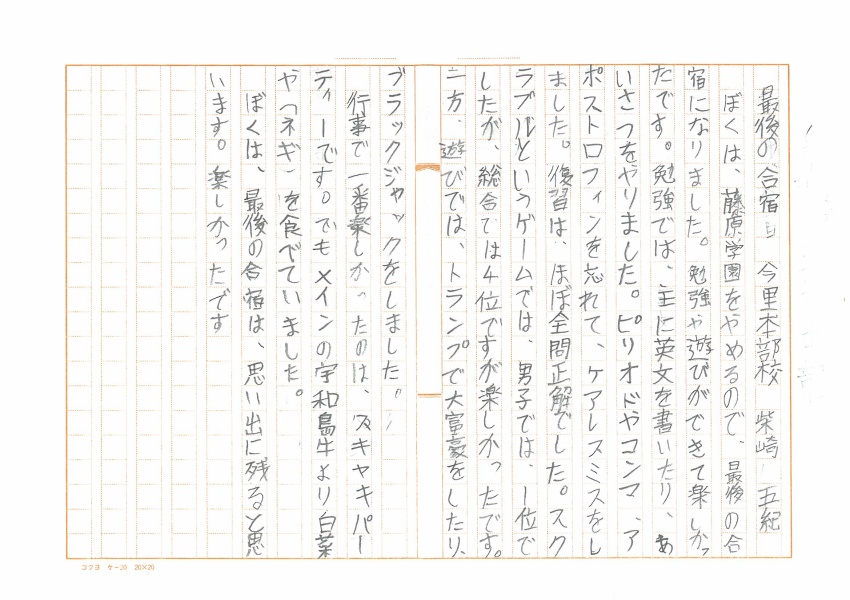 最後の合宿 今里本部校 柴崎 五紀
ぼくは、藤原学園をやめるので、最後の合
宿になりました。勉強や遊びができて楽しかっ
たです。勉強では、主に英文を書いたり、あ
いさつをやりました。ピリオドやコンマ、ア
ポストロフィンを忘れて、ケアレスミスをし
ました。復習は、ほぼ全問正解でした。スク
ラブルというゲームでは、男子では、1位で
したが、総合では4位ですが楽しかったです。
一方、遊びでは、トランプで大富豪をしたり、
ブラックジャックをしました。
行事で一番楽しかったのは、スキヤキパー
ティーです。でもメインの宇和島牛より白菜
や「ネギ」を食べていました。
ぼくは、最後の合宿は、思い出に残ると思
います。楽しかったです
コクヨ ケー20 20×20